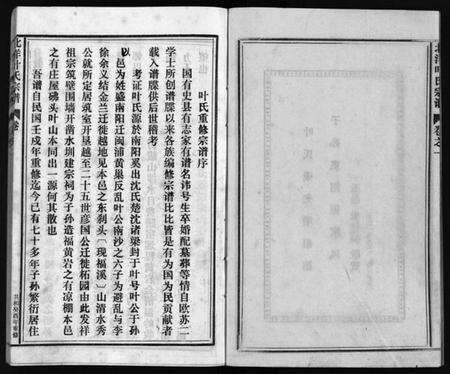 叶氏重修宗谱序
国有史县有志家有谱名讳号生卒婚配墓葬等情自欧苏二
学士所创谱牒以来各族编修宗谱比比皆是有为国为民贡献者
载入谱牒供后世稽考
考证叶氏源於南阳奚出沈氏楚沈诸梁封于叶号叶公于孙
以邑为姓盛南阳迁闽浦黄巢反乱叶公南沙之六子为避乱与李
徐余义结金兰迁徙越地见本邑之东刹头〔现福溪〕山清水秀
公就所定居筑室开垦越至二十五世彦国公迁徙柘园由此发祥
祖宗筑壁围墙开凿水圳建宗祠为子孙造福黄岩之有凉棚本邑
之有庄屋磡头叶山本同出一源何其散也
吾谱自民国壬戌年重修迄今已有七十多年子孙繁衍居住
北洋叶氏宗谱
北洋叶氏宗谱 卷之一